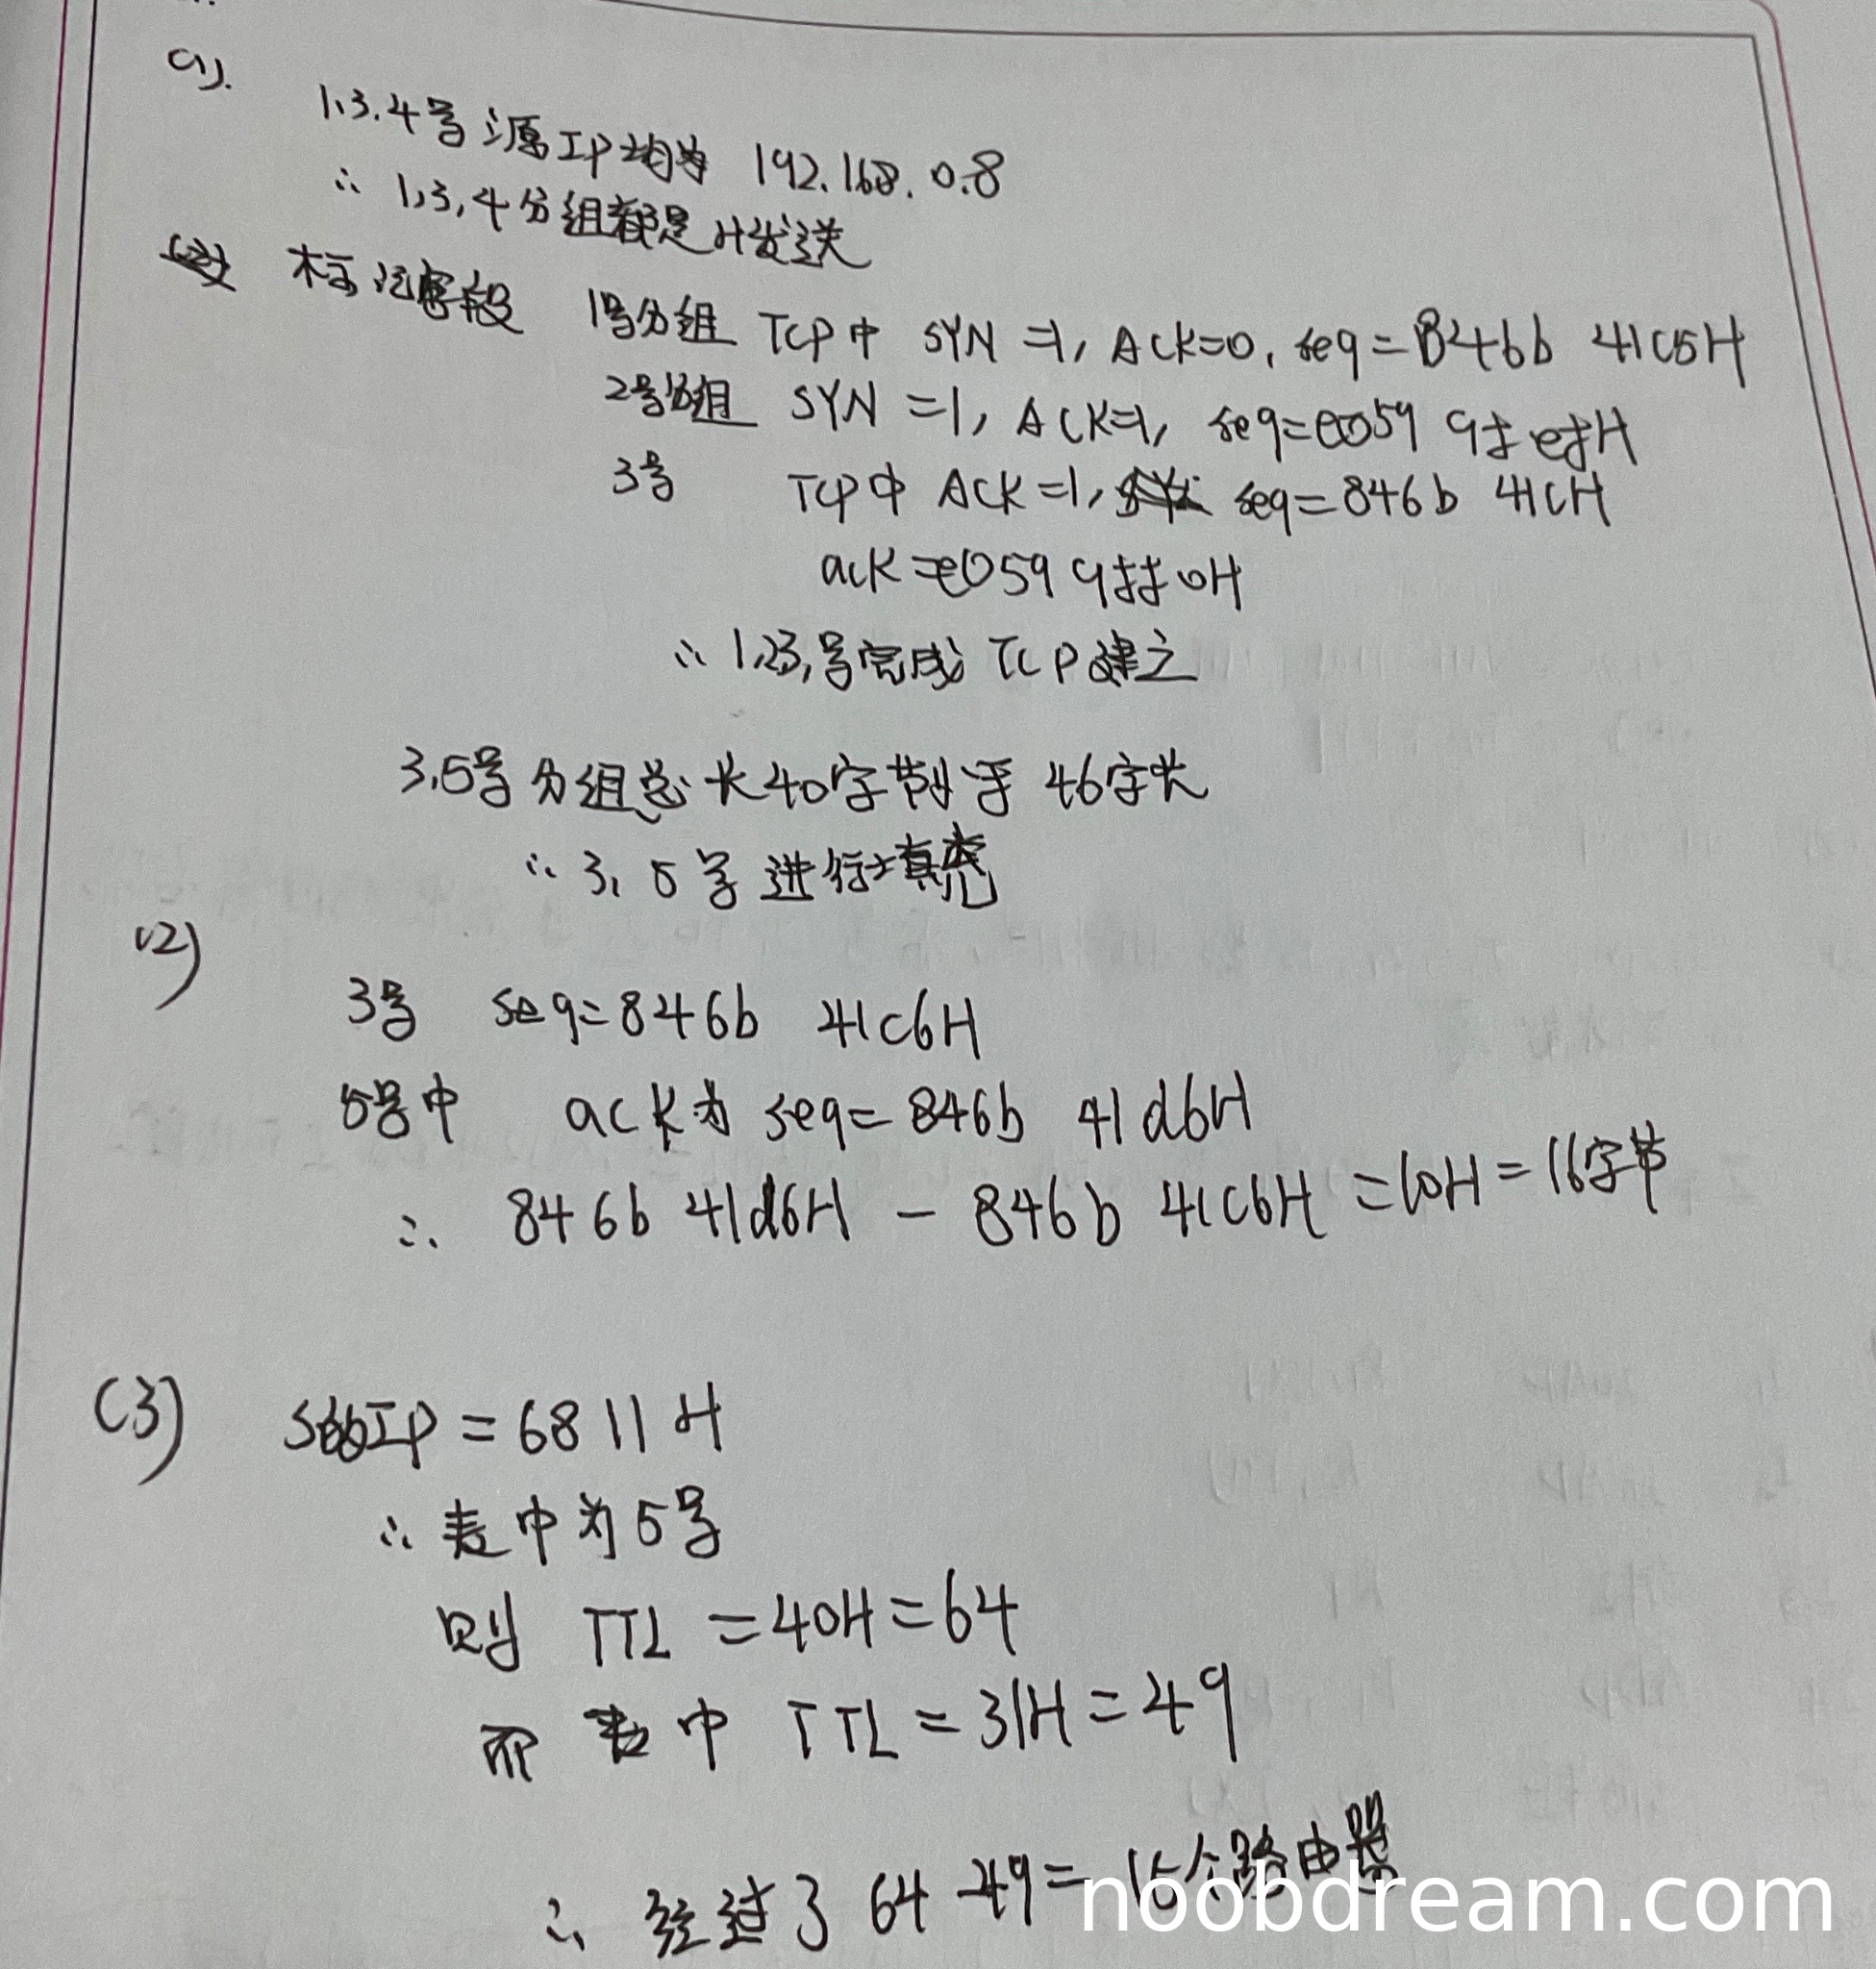 (1).
1、3、4号源IP均为 192.168.0.8
∴ 1,3,4分组都是H发送
标记字段 1号分组 TCP中 SYN=1, ACK=0, seq=846b 41c5H
2号分组 SYN=1, ACK=1, seq=e059 9fefH
3号 TCP中 ACK=1, seq=846b 41cH
ack=e059 9ff0H
∴ 1,2,3,号完成TCP建立
3.5号分组总长40字节小于46字长
∴ 3, 5号进行填充
(2)
3号 seq=846b 41c6H
5号中 ack为 seq=846b 41d6H
∴ 846b 41d6H - 846b 41c6H =10H=16字节
(3) S的IP=6811H
∴ 表中为5号
则 TTL=40H=64
而表中 TTL=31H=49
∴ 经过了 64-49=15个路由器
noobdream.com